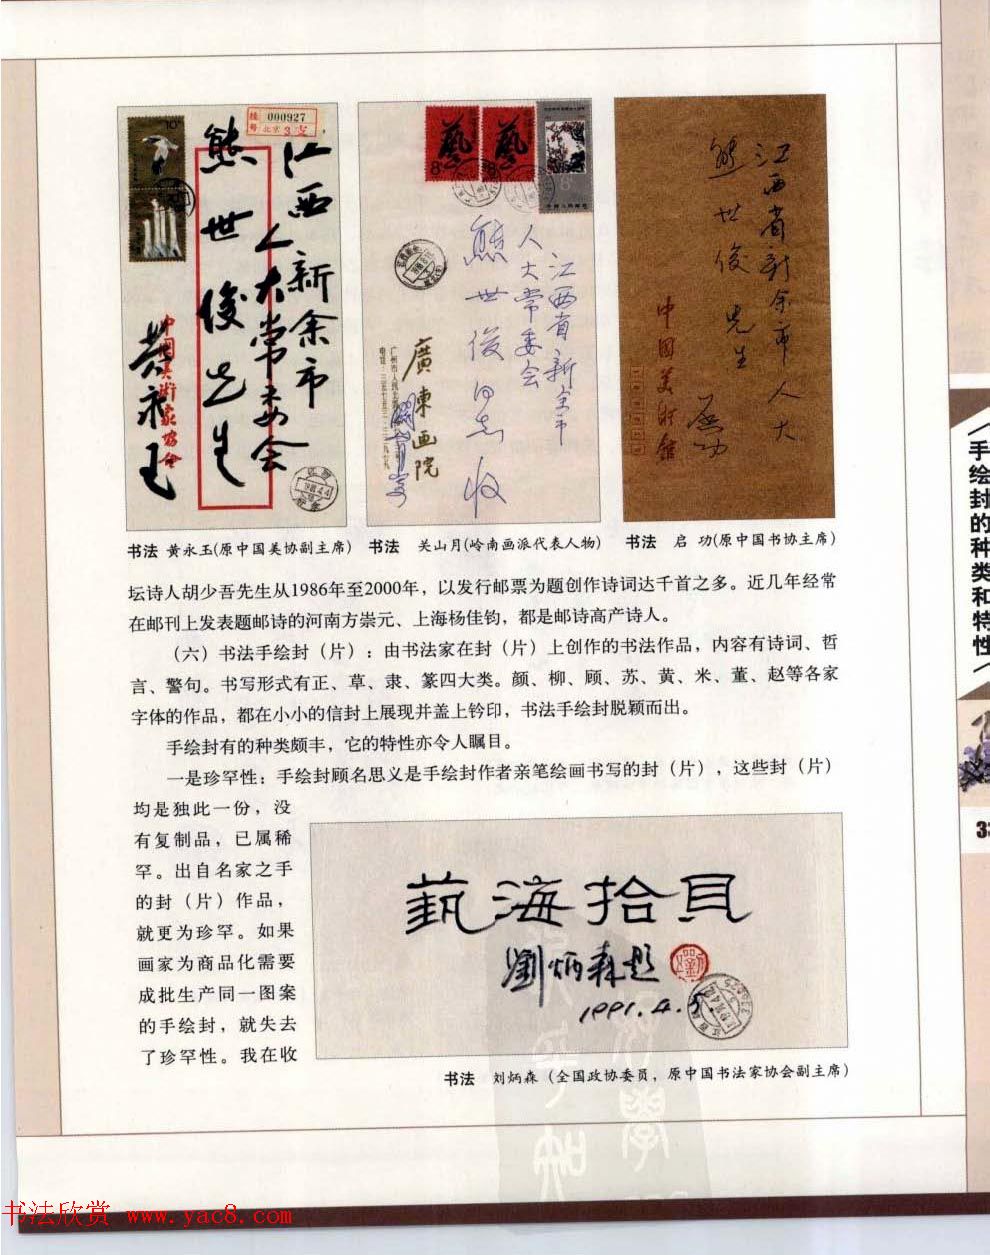 000927
北京
江西 新余市
人大常委会
熊世俊先生
中国美术家协会
黄永玉
藝
8
藝
8
江西省新余市
人大常委会
熊世俊同志收
廣東画院
关山月
江西省新余市人大
熊世俊先生
启功
中國美術館
书法 黄永玉(原中国美协副主席)
书法 关山月(岭南画派代表人物)
书法 启 功(原中国书协主席)
坛诗人胡少吾先生从1986年至2000年，以发行邮票为题创作诗词达千首之多。近几年经常
在邮刊上发表题邮诗的河南方崇元、上海杨佳钧，都是邮诗高产诗人。
（六）书法手绘封（片）：由书法家在封（片）上创作的书法作品，内容有诗词、哲
言、警句。书写形式有正、草、隶、篆四大类。颜、柳、顾、苏、黄、米、董、赵等各家
字体的作品，都在小小的信封上展现并盖上钤印，书法手绘封脱颖而出。
手绘封有的种类颇丰，它的特性亦令人瞩目。
一是珍罕性；手绘封顾名思义是手绘封作者亲笔绘画书写的封（片），这些封（片）
均是独此一份，没
有复制品，已属稀
罕。出自名家之手
的封（片）作品，
就更为珍罕。如果
画家为商品化需要
成批生产同一图案
的手绘封，就失去
了珍罕性。我在收
藝海拾貝
劉炳森題
1991.4.5.
书法 刘炳森（全国政协委员，原中国书法家协会副主席）
手绘封的种类和特性
书法欣赏 www.yac8.com